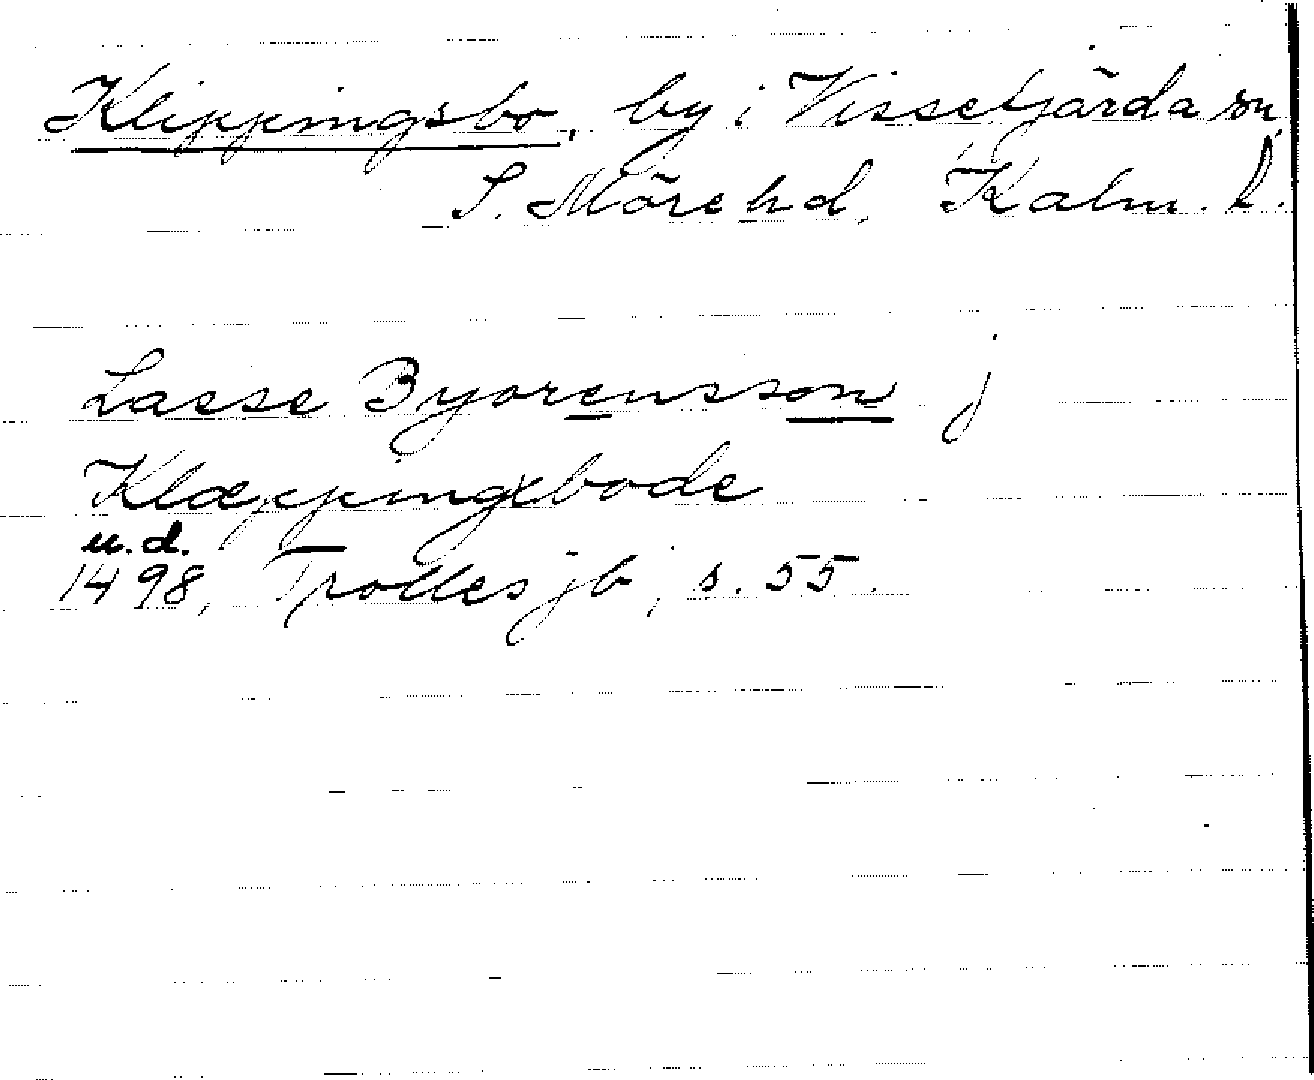 Klippingsbo, by i Vissefjärda sn,
S. Möre hd, Kalm. l.
Lasse Byorensson j
Klæppingxbode
u.d.
1498, Trolles jb, s. 55.